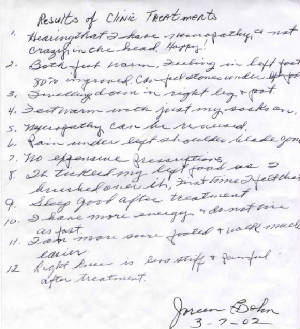 Results of Clinic Treatments
1. Hearing that I have neuropathy, & not
crazy in the head. Happy!
2. Both feet warm. Feeling in left foot
is improved. Can feel stones under
3. Tingling down in right leg & foot
4. Feet warm with just my socks on.
5. Neuropathy can be reversed.
6. Pain under left shoulder blade gone
7. No expensive prescriptions
8. It tickled my left foot as I
brushed over it, first time I felt that
9. Sleep good after treatment
10. I have more energy & do not tire
as fast.
11. I am more sure footed & walk much
easier
12. Right knee is less stiff & painful
after treatment.
3-7-02